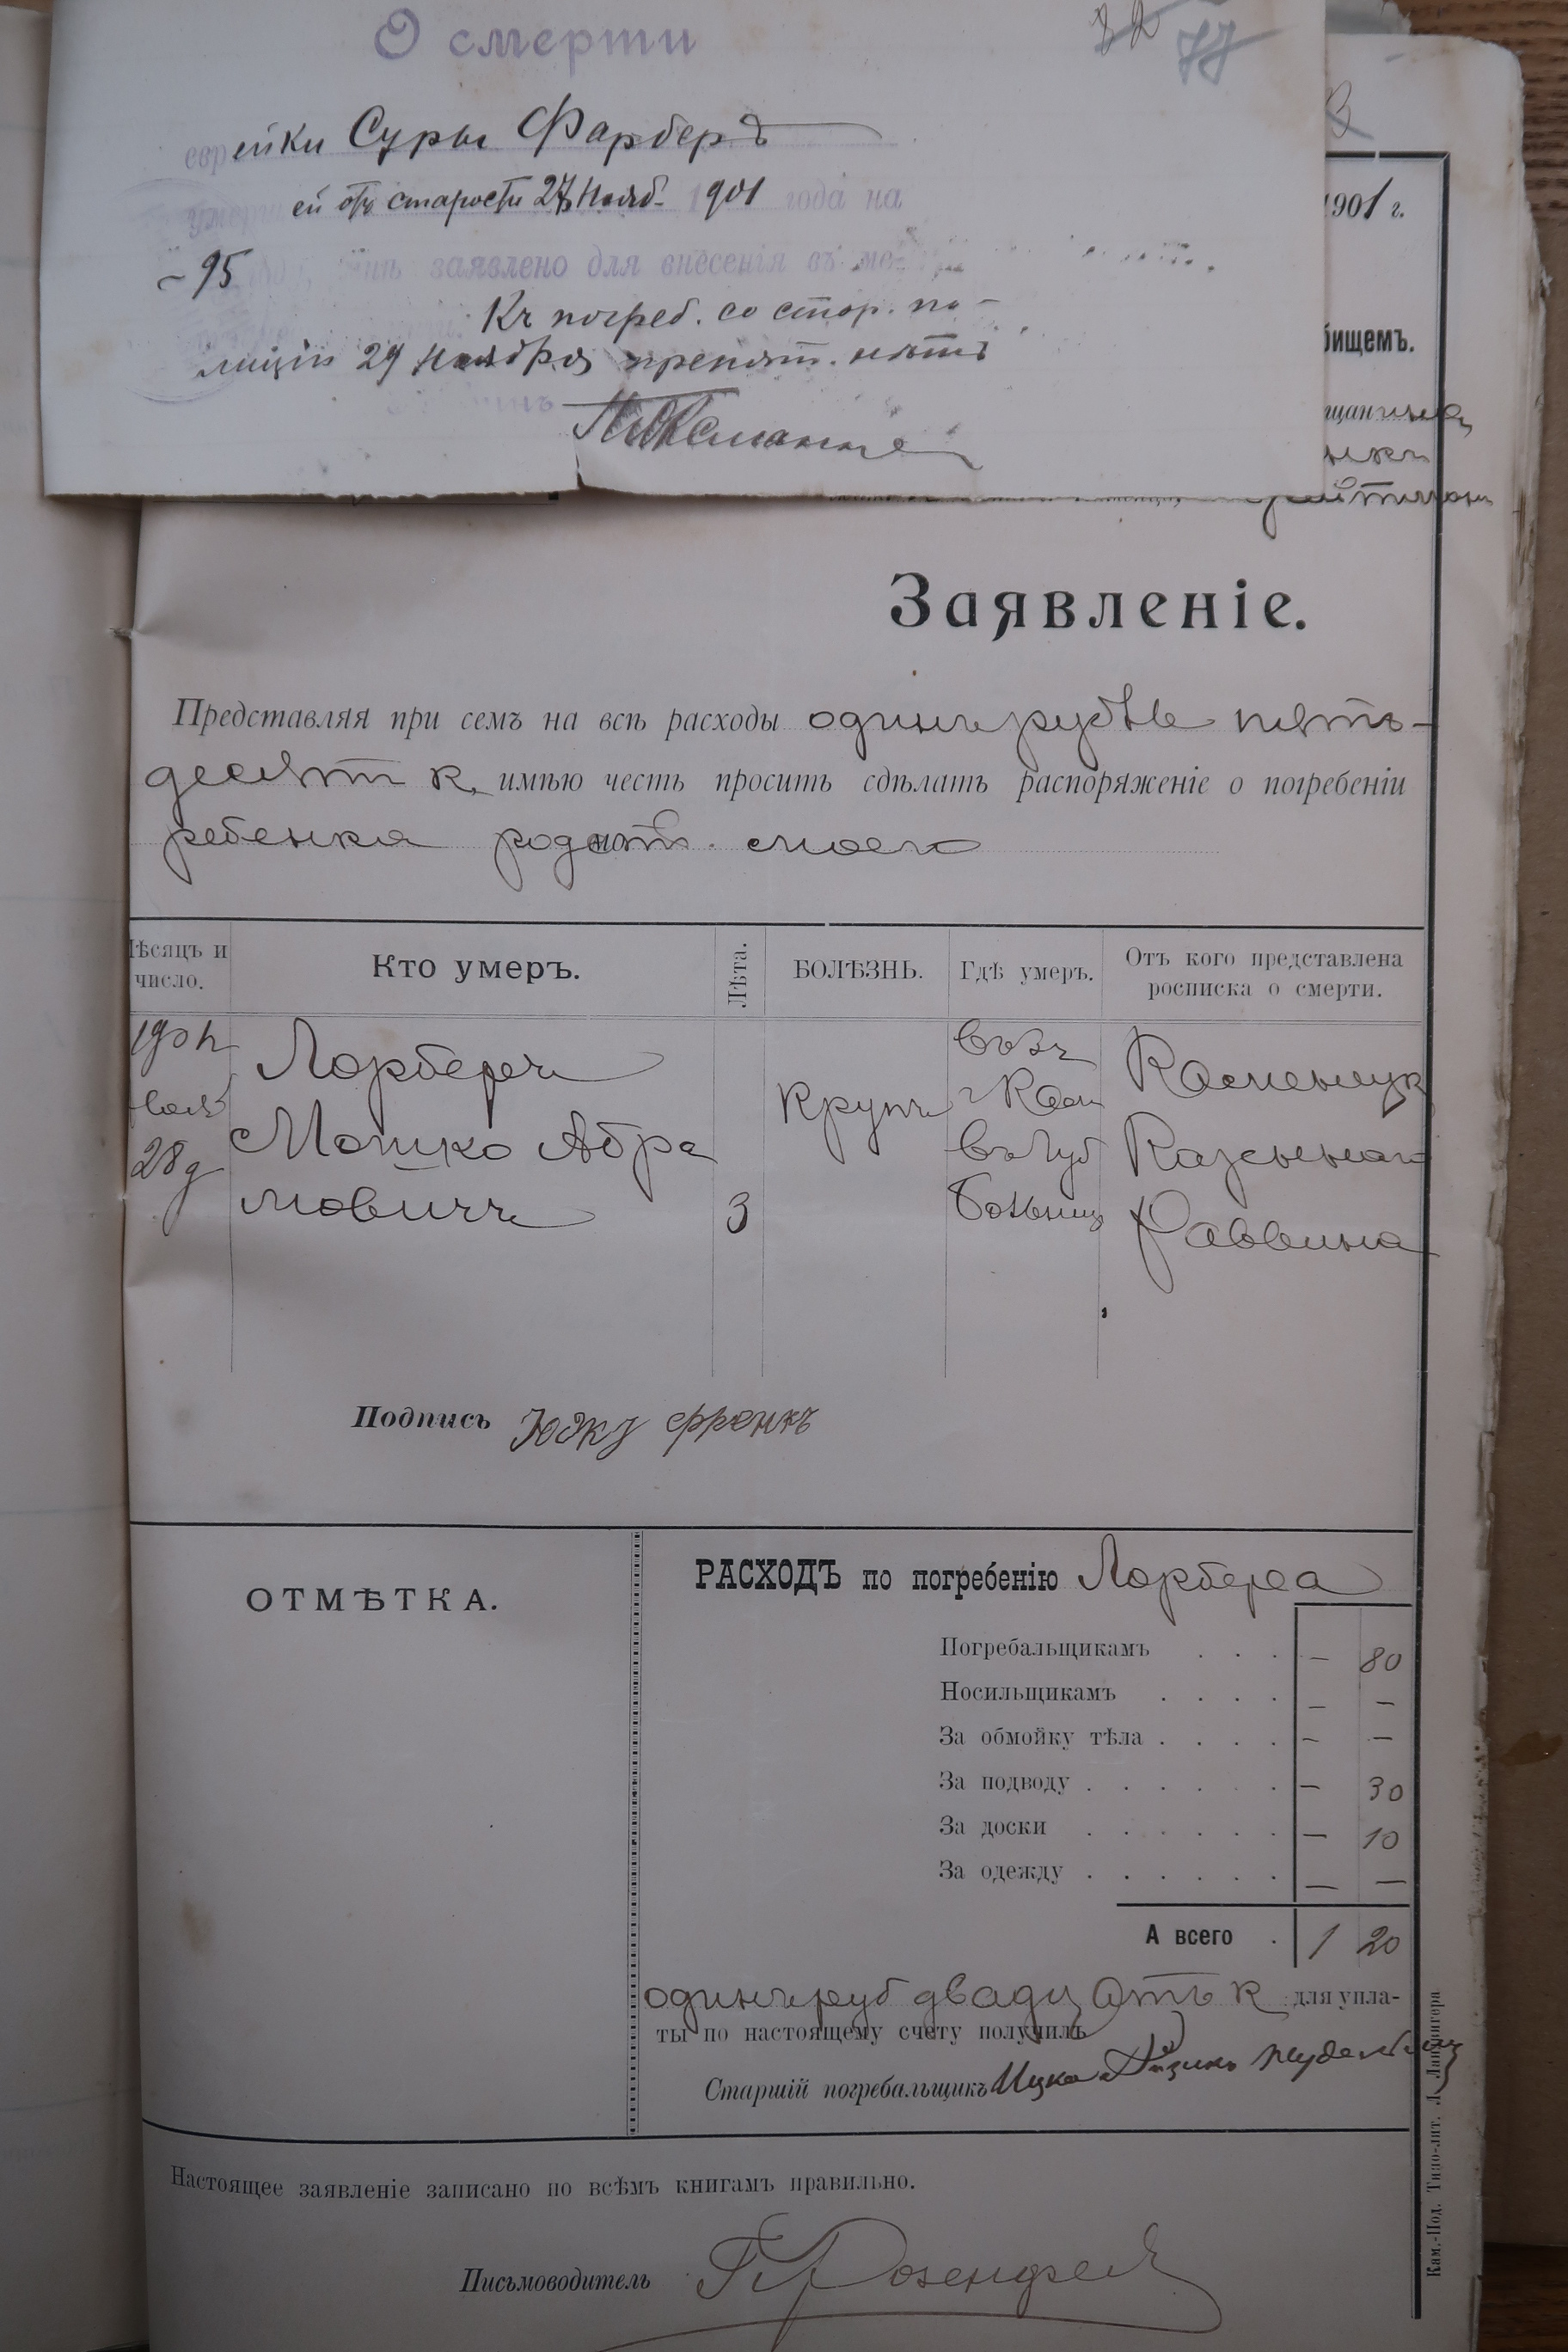 О смерти
77
еврейки Суры Фарберъ
умершей отъ старости 27 Нояб. 1901 года на
95 заявлено для внесенія въ
Къ погреб. со стор. по-
лиціи 29 ноября препят. нѣтъ
1901 г.
бищемъ.
Заявленіе.
Представляя при семъ на всѣ расходы одинъ рубль пять-
десят к. имѣю честь просить сдѣлать распоряженіе о погребеніи
ребенка моего
Мѣсяцъ и число.
Кто умеръ.
Лѣта.
БОЛѢЗНЬ.
Гдѣ умеръ.
Отъ кого представлена росписка о смерти.
28
Лорберъ
Мошко Абра
мовичъ
3
Крупъ
въ
г Кам
въ Губ
Больниц
Каменецк
Казеннаго
Раввина
Подпись Френкъ
ОТМѢТКА.
РАСХОДЪ по погребенію Лорбера
Погребальщикамъ . . . — 80
Носильщикамъ . . . . — —
За обмойку тѣла . . . . — —
За подводу . . . . . — 30
За доски . . . . . . — 10
За одежду . . . . . . — —
А всего . 1 20
одинъ руб двадцать к для упла-
ты по настоящему счету получилъ
Старшій погребальщикъ Ицко
Настоящее заявленіе записано по всѣмъ книгамъ правильно.
Письмоводитель Розенфел
Кам.-Под. Типо-лит. Л. Ландвигера